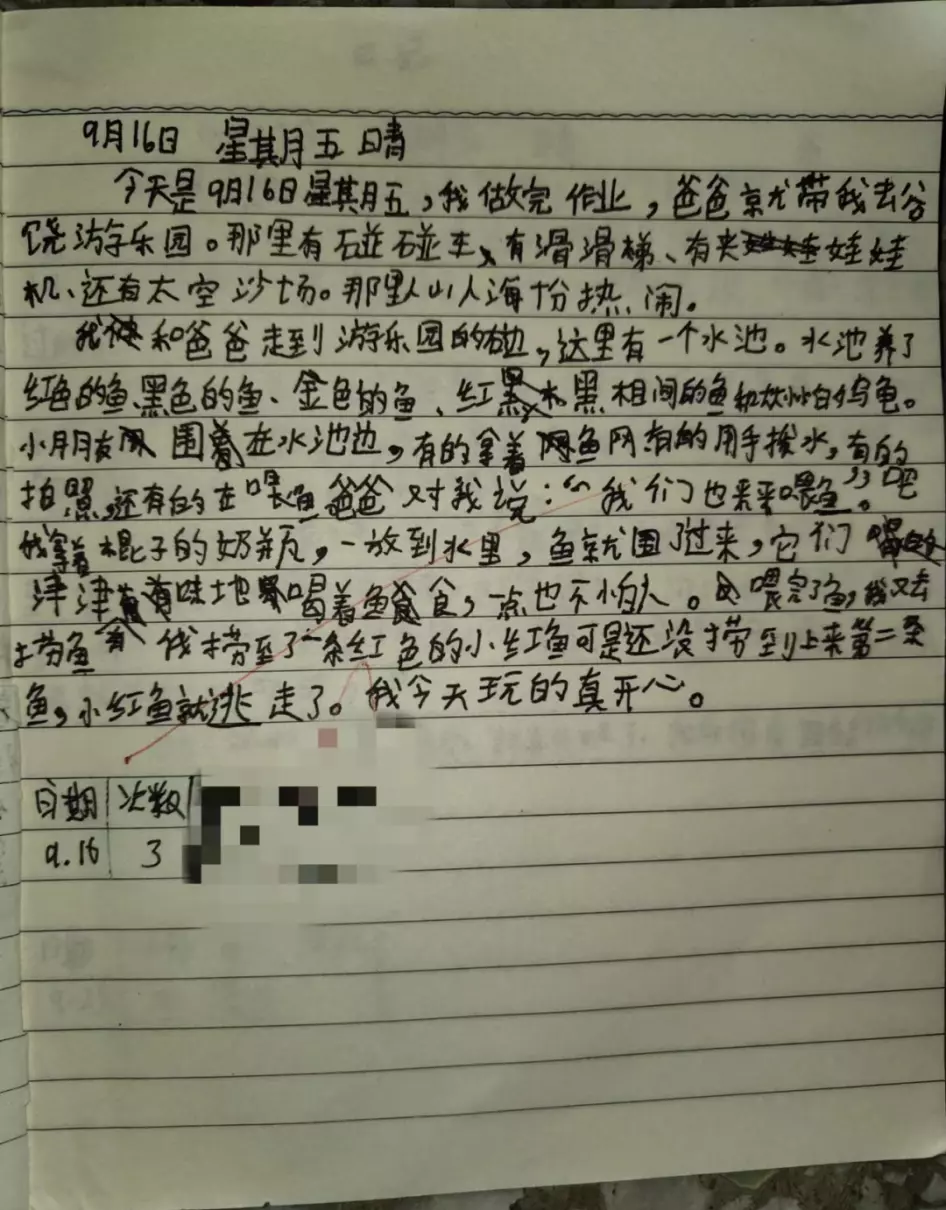 9月16日 星其月五 晴
今天是9月16日星其月五,我做完作业,爸爸就带我去谷
饶游乐园。那里有碰碰车、有滑滑梯、有夹娃娃
机、还有太空沙场。那里人山人海份热闹。
我和爸爸走到游乐园的右边,这里有一个水池。水池养了
红色的鱼、黑色的鱼、金色的鱼、红黑相间的鱼和乌龟。
小朋友围着在水池边,有的拿着鱼网有的用手拨水,有的
拍照,还有的在喂鱼爸爸对我说:“我们也来喂鱼”。吧
我拿着棍子的奶瓶,一放到水里,鱼就围了过来,它们
津津有味地喝着鱼食,一点也不怕人。喂完了鱼,我又去
捞鱼 我捞到了一条红色的小红鱼可是还没捞到上来第二条
鱼,小红鱼就逃走了。我今天玩的真开心。
日期 次数
9.16 3